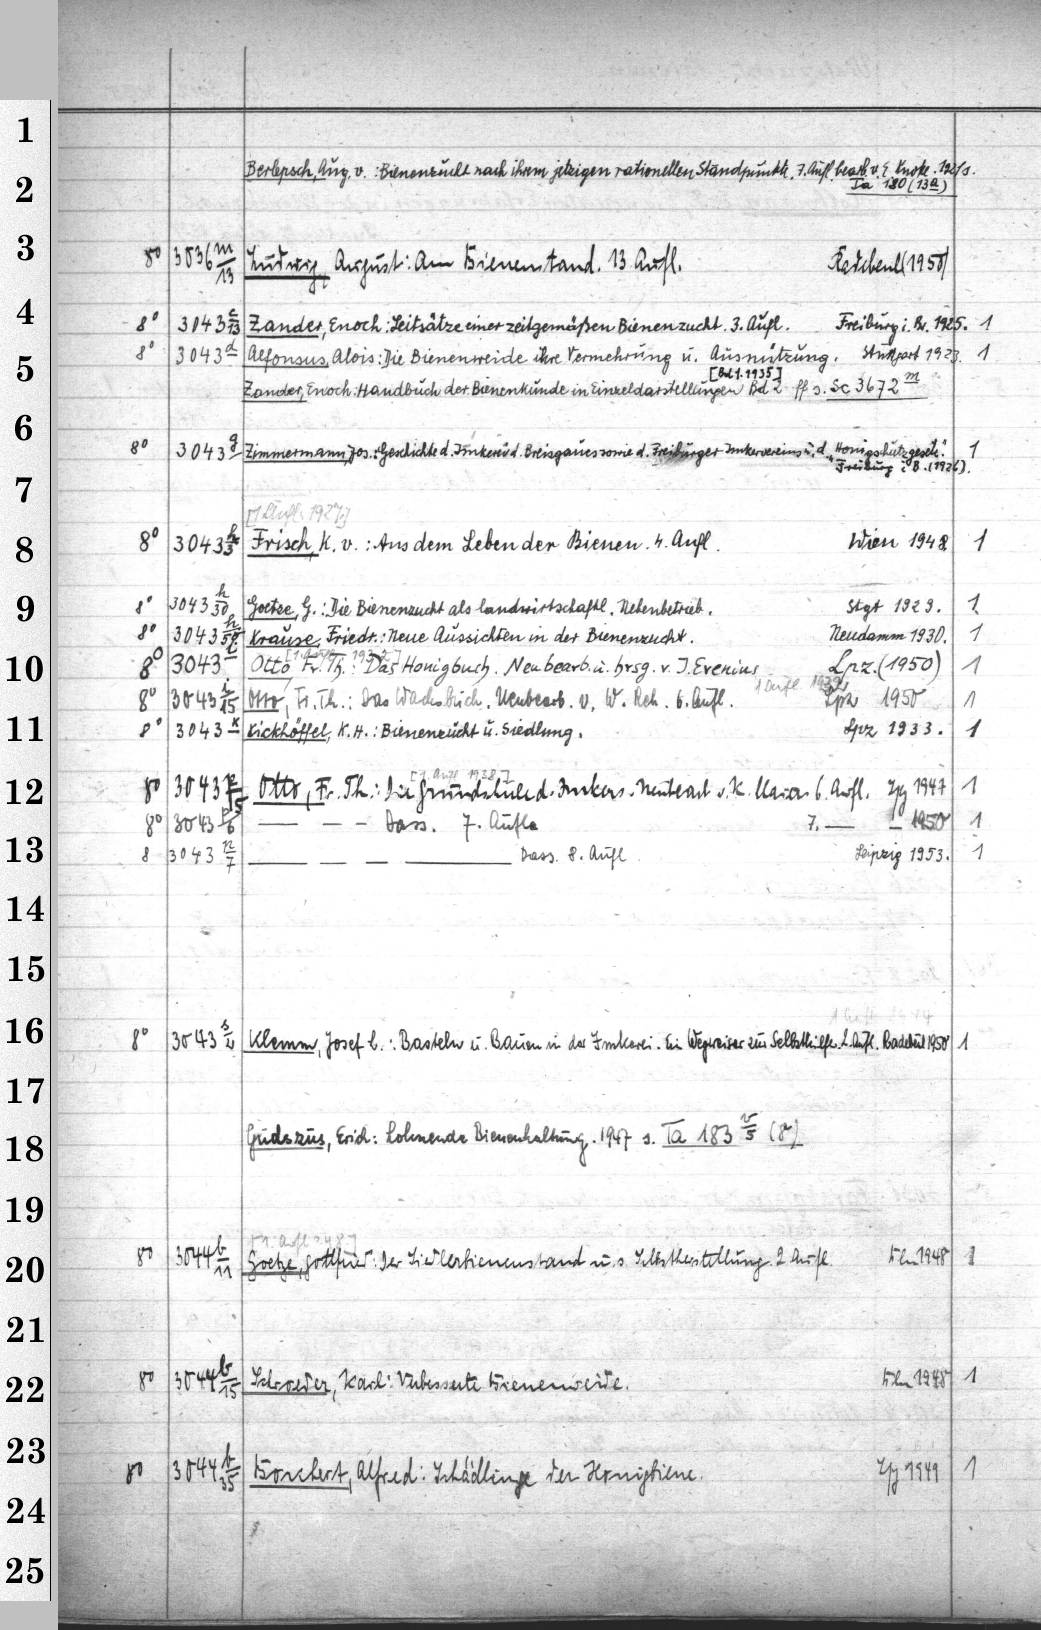 Berlepsch, Aug. v. : Bienenzucht nach ihrem jetzigen rationellen Standpunkte. 7. Aufl. bearb. v. Knoke. s.
Ta 180 (13a)
8° 3036 m/13 Ludwig, August: Am Bienenstand. 13 Aufl. Radebeul (1950) 
8° 3043 c/13 Zander, Enoch: Leitsätze einer zeitgemäßen Bienenzucht. 3. Aufl. Freiburg i. Br. 1925. 1
8° 3043 d Alfonsus, Alois: Die Bienenweide ihre Vermehrung u. Ausnützung. Stuttgart 1923. 1
[Bd 1. 1935]
Zander, Enoch: Handbuch der Bienenkunde in Einzeldarstellungen Bd 2 ff s. Sc 3672 m
8° 3043 g Zimmermann, Jos.: Geschichte d. Imkerei d. Breisgaues sowie d. Freiburger Imkervereins u. d. "Honigschutzgesetz". 1
Freiburg i. B. (1926).
[1 Aufl. 1927]
8° 3043 h/3 Frisch, K. v. : Aus dem Leben der Bienen. 4. Aufl. Wien 1948 1
8° 3043 h/30 Goetze, G.: Die Bienenzucht als landwirtschaftl. Nebenbetrieb. Stgt 1929. 1
8° 3043 h/ Krause, Friedr.: Neue Aussichten in der Bienenzucht. Neudamm 1930. 1
8° 3043 i Otto Fr. Th.: Das Honigbuch. Neubearb. u. hrsg. v. J. Evenius Lpz. (1950) 1
1 Aufl 1939
8° 3043 i/15 Otto, Fr. Th.: Das Wachsbuch. Neubearb. v. W. 6. Aufl. Lpz 1950 1
8° 3043 k Kickhöffel, K. H.: Bienenzucht u. Siedlung. Lpz 1933. 1
[1. Aufl 1938]
8° 3043 n/5 Otto, Fr. Th.: Die Grundschule d. Imkers. Neubearb v. K. 6. Aufl. Lpg 1947 1
8° 3043 n/6 — — – Dass. 7. Aufl. 7. — – 1950 1
8 3043 n/7 — — — — Dass. 8. Aufl Leipzig 1953. 1
1 Aufl.
8° 3043 s/ Klemm, Josef : Basteln u. Bauen in der Imkerei. Ein Wegweiser zur Selbsthilfe. 2. Aufl. Radebeul 1950 1
Gudszus, Erich: Lohnende Bienenhaltung. 1947 s. Ta 183 v/5 (8)
[1. Aufl 48]
8° 3044 b/11 Goetze, Gottfried: Der Siedlerbienenstand u. s. Selbstherstellung. 2 Aufl. Köln 1948 1
8° 3044 b/15 Schroeder, Karl: Verbesserte Bienenweide. Köln 1948 1
8° 3044 b/35 Borchert, Alfred: Schädlinge der Honigbiene. Lpg 1949 1
1
2
3
4
5
6
7
8
9
10
11
12
13
14
15
16
17
18
19
20
21
22
23
24
25